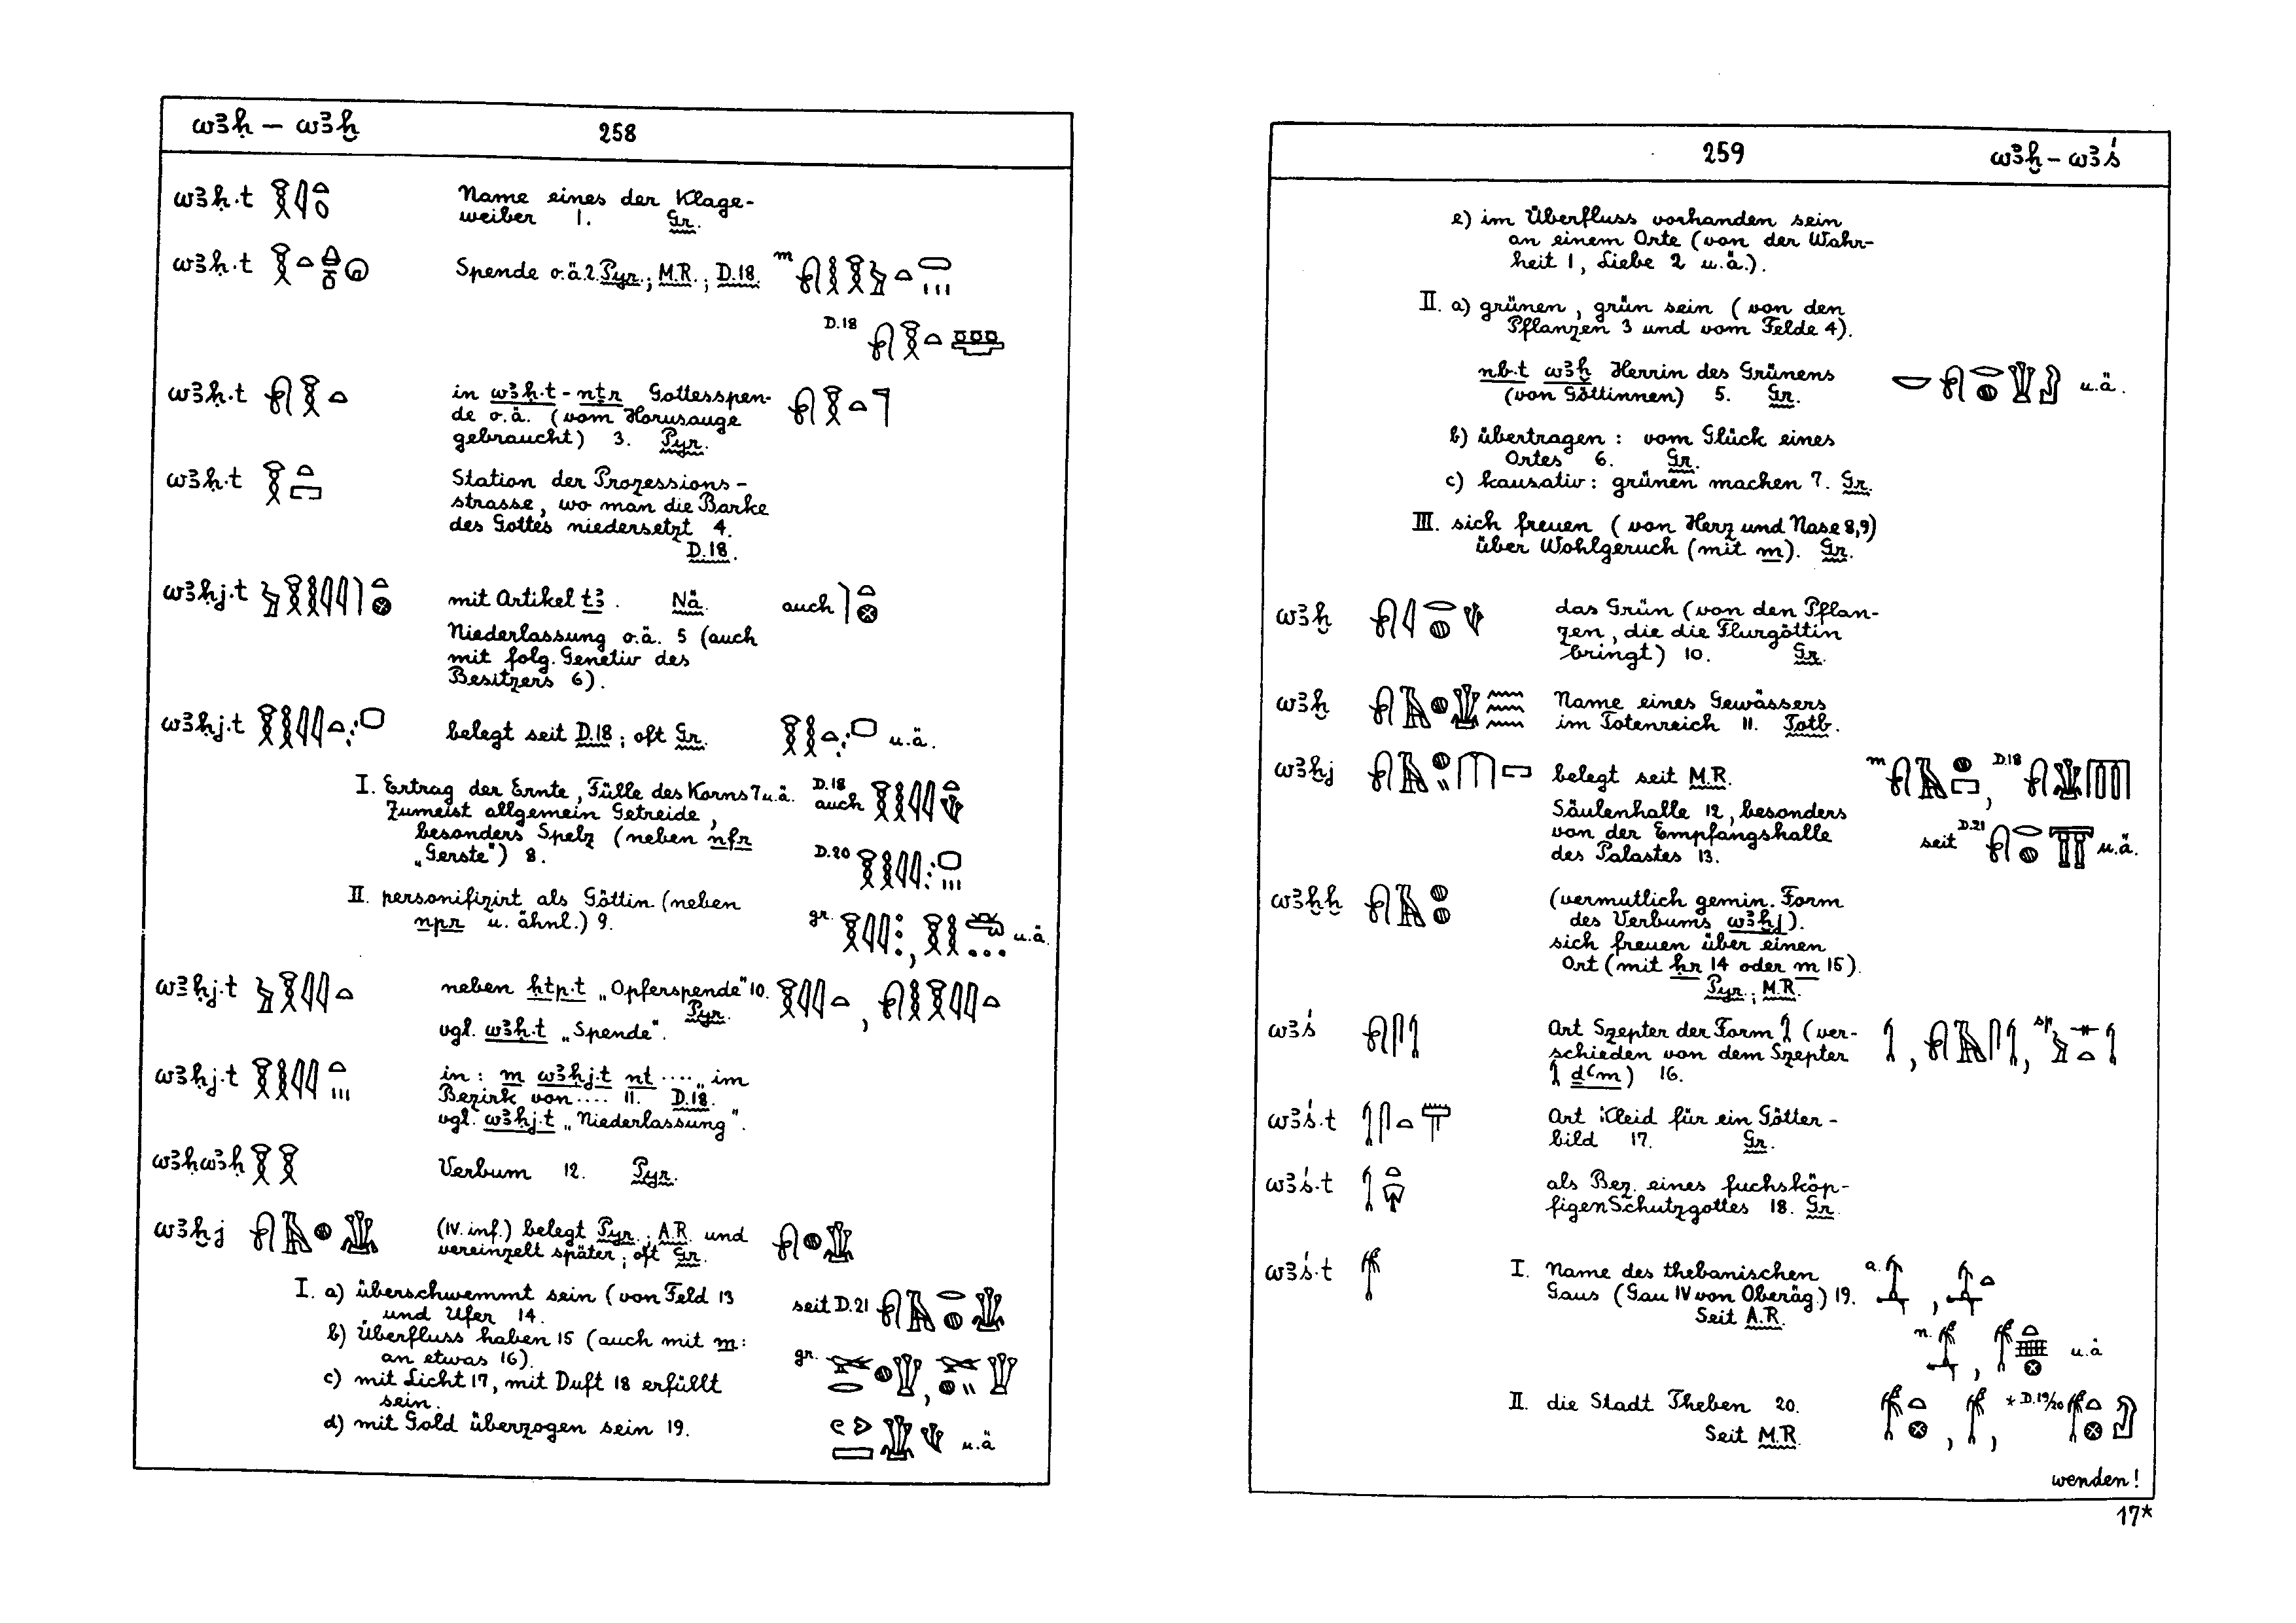 wꜣḥ – wꜣḫ 258
wꜣḥ.t Name eines der Klage-
weiber 1. Gr.
wꜣḥ.t Spende o.ä. 2. Pyr.; M.R.; D.18. m
D.18
wꜣḥ.t in wꜣḥ.t - nṯr Gottesspen-
de o.ä. (vom Horusauge
gebraucht) 3. Pyr.
wꜣḥ.t Station der Prozessions-
strasse, wo man die Barke
des Gottes niedersetzt 4.
D.18.
wꜣḥj.t mit Artikel tꜣ. Nä. auch
Niederlassung o.ä. 5 (auch
mit folg. Genetiv des
Besitzers 6).
wꜣḥj.t belegt seit D.18; oft Gr. u.ä.
I. Ertrag der Ernte, Fülle des Korns 7 u.ä. D.18 auch
Zumeist allgemein Getreide,
besonders Spelz (neben nfr
„Gerste") 8. D.20
II. personifizirt als Göttin (neben
npr u. ähnl.) 9. gr. , u.ä.
wꜣḥj.t neben ḥtp.t „Opferspende" 10. ,
Pyr.
vgl. wꜣḥ.t „Spende".
wꜣḥj.t in: m wꜣḥj.t nt .... „im
Bezirk von .... 11. D.18.
vgl. wꜣḥj.t „Niederlassung".
wꜣḥwꜣḥ Verbum 12. Pyr.
wꜣḫj (IV. inf.) belegt Pyr.; A.R. und
vereinzelt später; oft Gr.
I. a) überschwemmt sein (von Feld 13
und Ufer 14. seit D.21
b) Überfluss haben 15 (auch mit m:
an etwas 16). gr. ,
c) mit Licht 17, mit Duft 18 erfüllt
sein.
d) mit Gold überzogen sein 19. u.ä
259 wꜣḫ – wꜣś
e) im Überfluss vorhanden sein
an einem Orte (von der Wahr-
heit 1, Liebe 2 u.ä.).
II. a) grünen, grün sein (von den
Pflanzen 3 und vom Felde 4).
nb.t wꜣḫ Herrin des Grünens u.ä.
(von Göttinnen) 5. Gr.
b) übertragen: vom Glück eines
Ortes 6. Gr.
c) kausativ: grünen machen 7. Gr.
III. sich freuen (von Herz und Nase 8,9)
über Wohlgeruch (mit m). Gr.
wꜣḫ das Grün (von den Pflan-
zen, die die Flurgöttin
bringt) 10. Gr.
wꜣḫ Name eines Gewässers
im Totenreich 11. Totb.
wꜣḫj belegt seit M.R. m , D.18
Säulenhalle 12, besonders
von der Empfangshalle seit D.21 u.ä.
des Palastes 13.
wꜣḫḫ (vermutlich gemin. Form
des Verbums wꜣḫj).
sich freuen über einen
Ort (mit ḥr 14 oder m 15).
Pyr.; M.R.
wꜣś Art Szepter der Form (ver- , , sp.
schieden von dem Szepter
ḏꜥm) 16.
wꜣś.t Art Kleid für ein Götter-
bild 17. Gr.
wꜣś.t als Bez. eines fuchsköp-
figen Schutzgottes 18. Gr.
wꜣś.t I. Name des thebanischen a. ,
Gaus (Gau IV von Oberäg.) 19.
Seit A.R.
n. , u.ä
II. die Stadt Theben 20. , , * D.19/20
Seit M.R.
wenden!
17*